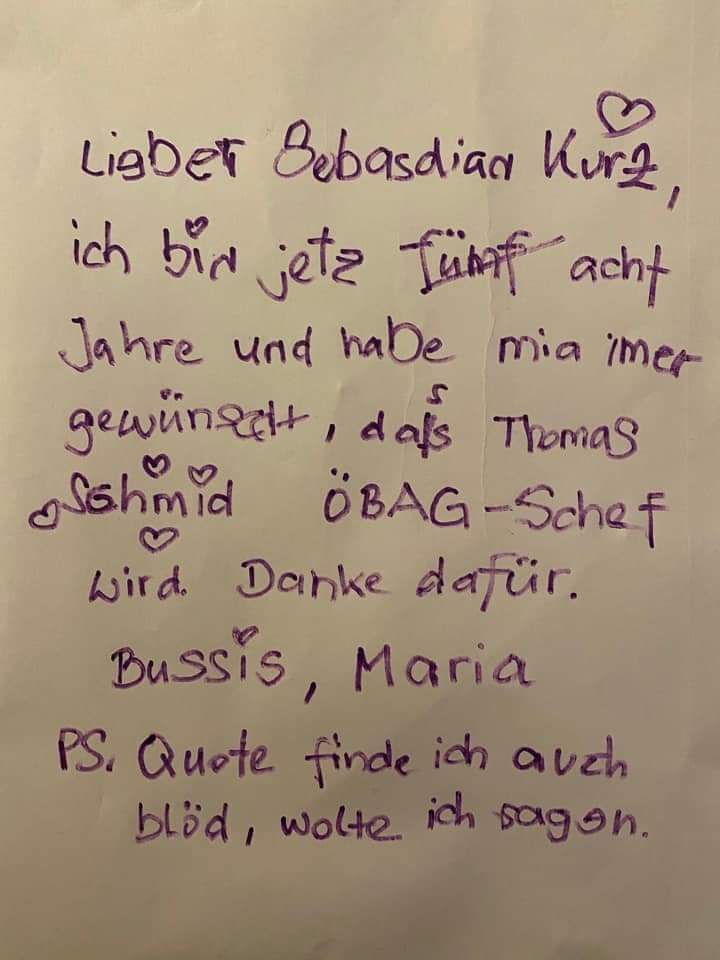 Lieber Sebasdian Kurz,
ich bin jetz fünf acht
Jahre und habe mia imer
gewünscht, dass Thomas
Schmid ÖBAG-Schef
wird. Danke dafür.
Bussis, Maria
PS. Quote finde ich auch
blöd, wolte ich sagen.